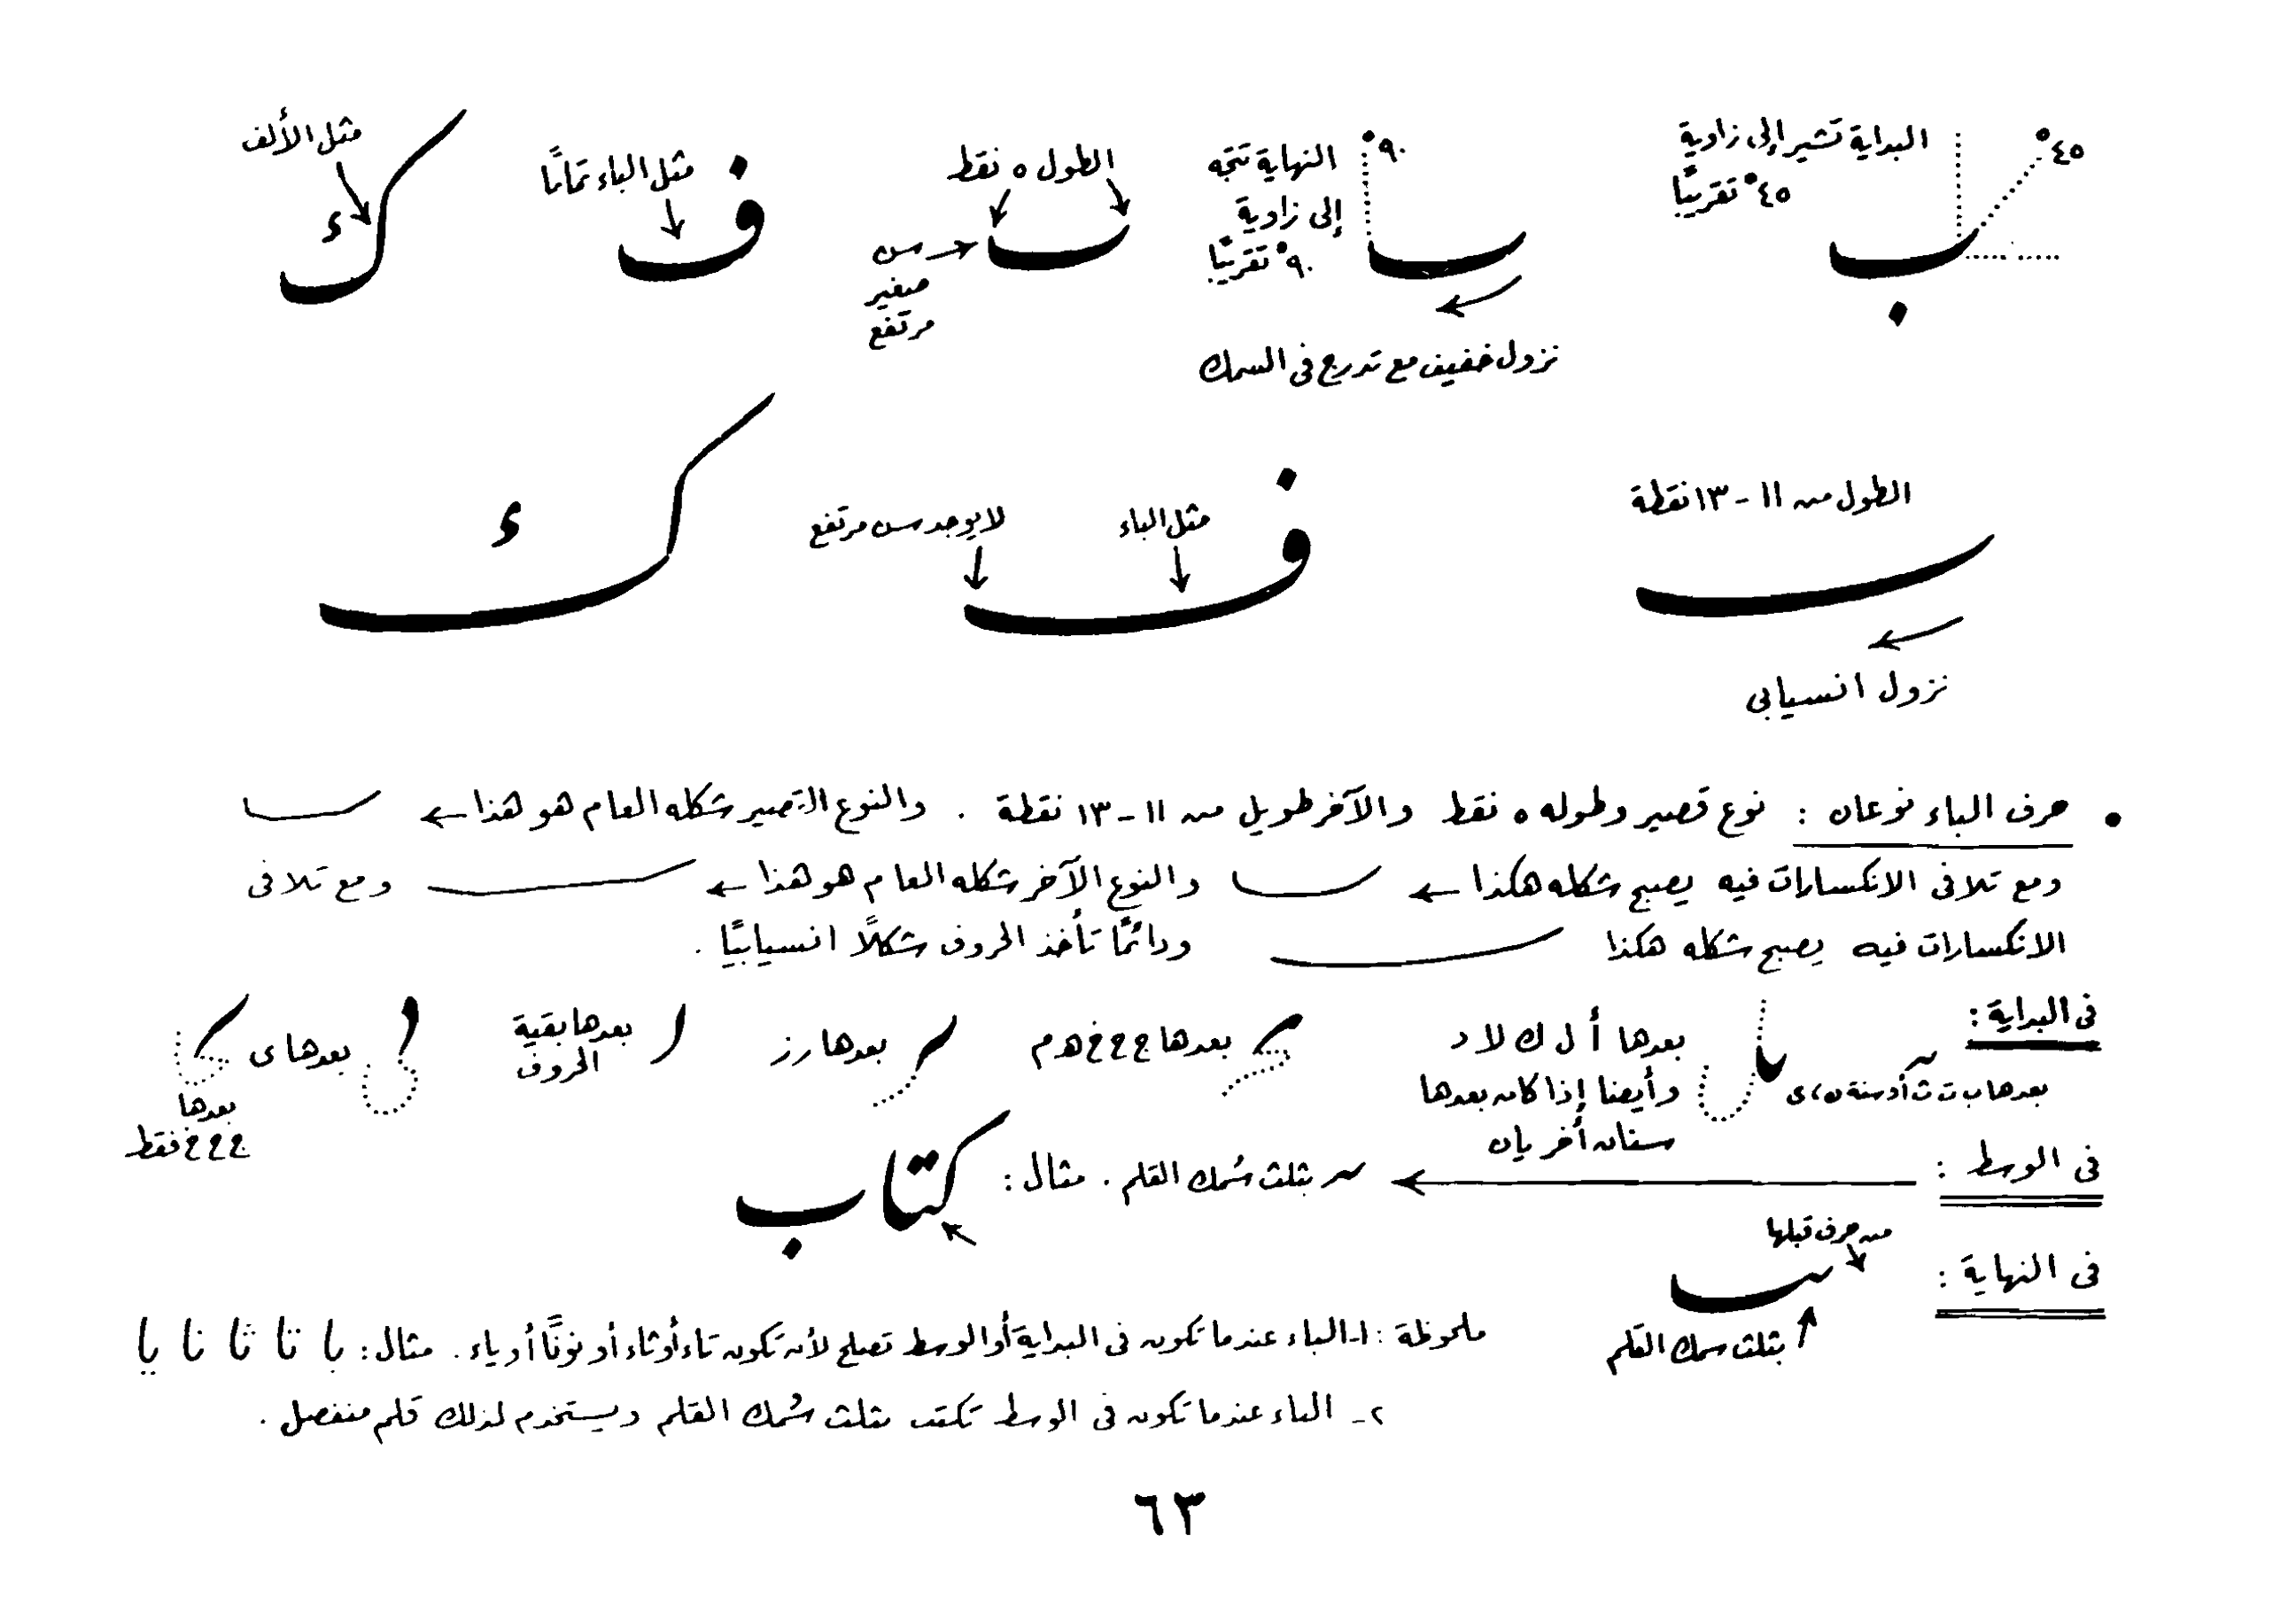 ٤٥°
البداية تشير إلى زاوية
٤٥° تقريبًا
ب
٩٠°
النهاية تتجه
إلى زاوية
٩٠° تقريبًا
نزول خفيف مع تدرج فى السمك
الطول ٥ نقط
سن
صغير
مرتفع
مثل الباء تمامًا
ف
مثل الألف
ك
الطول من ١١ - ١٣ نقطة
نزول انسيابى
مثل الباء
لا يوجد سن مرتفع
ف
ك
• حرف الباء نوعان : نوع قصير وطوله ٥ نقط والآخر طويل من ١١ - ١٣ نقطة . والنوع القصير شكله العام هو هذا ←
ومع تلافى الانكسارات فيه يصبح شكله هكذا ← والنوع الآخر شكله العام هو هذا ← ومع تلافى
الانكسارات فيه يصبح شكله هكذا ودائمًا تأخذ الحروف شكلاً انسيابيًا .
فى البداية :
بعدها ب ت ث أو سنة ن ، ى
بعدها أ ل ك لا د
وأيضا إذا كان بعدها
سنتان أخريان
بعدها ج ح خ هـ م
بعدها ر ز
بعدها بقية
الحروف
بعدها ى
بعدها
ج ح خ فقط
فى الوسط : ← بثلث سُمك القلم . مثال : كتاب
فى النهاية :
من حرف قبلها
بثلث سمك القلم
ملحوظة : ١- الباء عندما تكون فى البداية أو الوسط تصلح لأن تكون تاء أو ثاء أو نونًا أو ياء . مثال : با تا ثا نا يا
٢- الباء عندما تكون فى الوسط تكتب بثلث سُمك القلم ويستخدم لذلك قلم منفصل .
٦٣